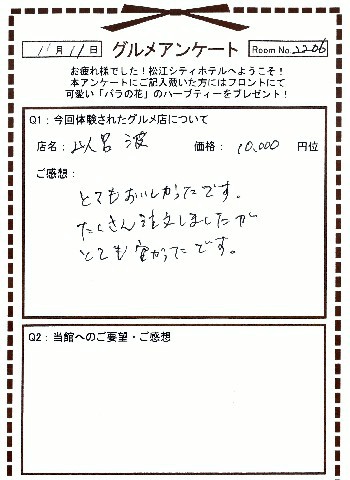 11月11日 グルメアンケート Room No. 2206
お疲れ様でした!松江シティホテルへようこそ!
本アンケートにご記入戴いた方にはフロントにて
可愛い「バラの花」のハーブティーをプレゼント!
Q1:今回体験されたグルメ店について
店名: 以呂波 価格: 10,000 円位
ご感想:
とてもおいしかったです。
たくさん注文しましたが
とても安かったです。
Q2:当館へのご要望・ご感想